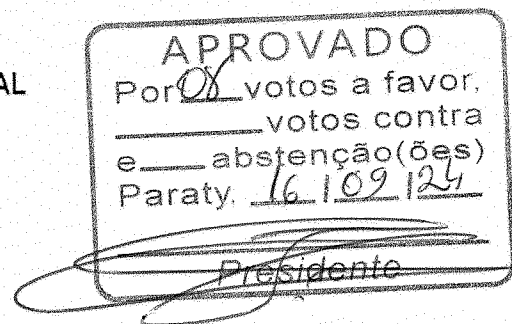 AL
APROVADO
Por 08 votos a favor,
______ votos contra
e ____ abstenção(ões)
Paraty, 16 / 09 / 24
Presidente